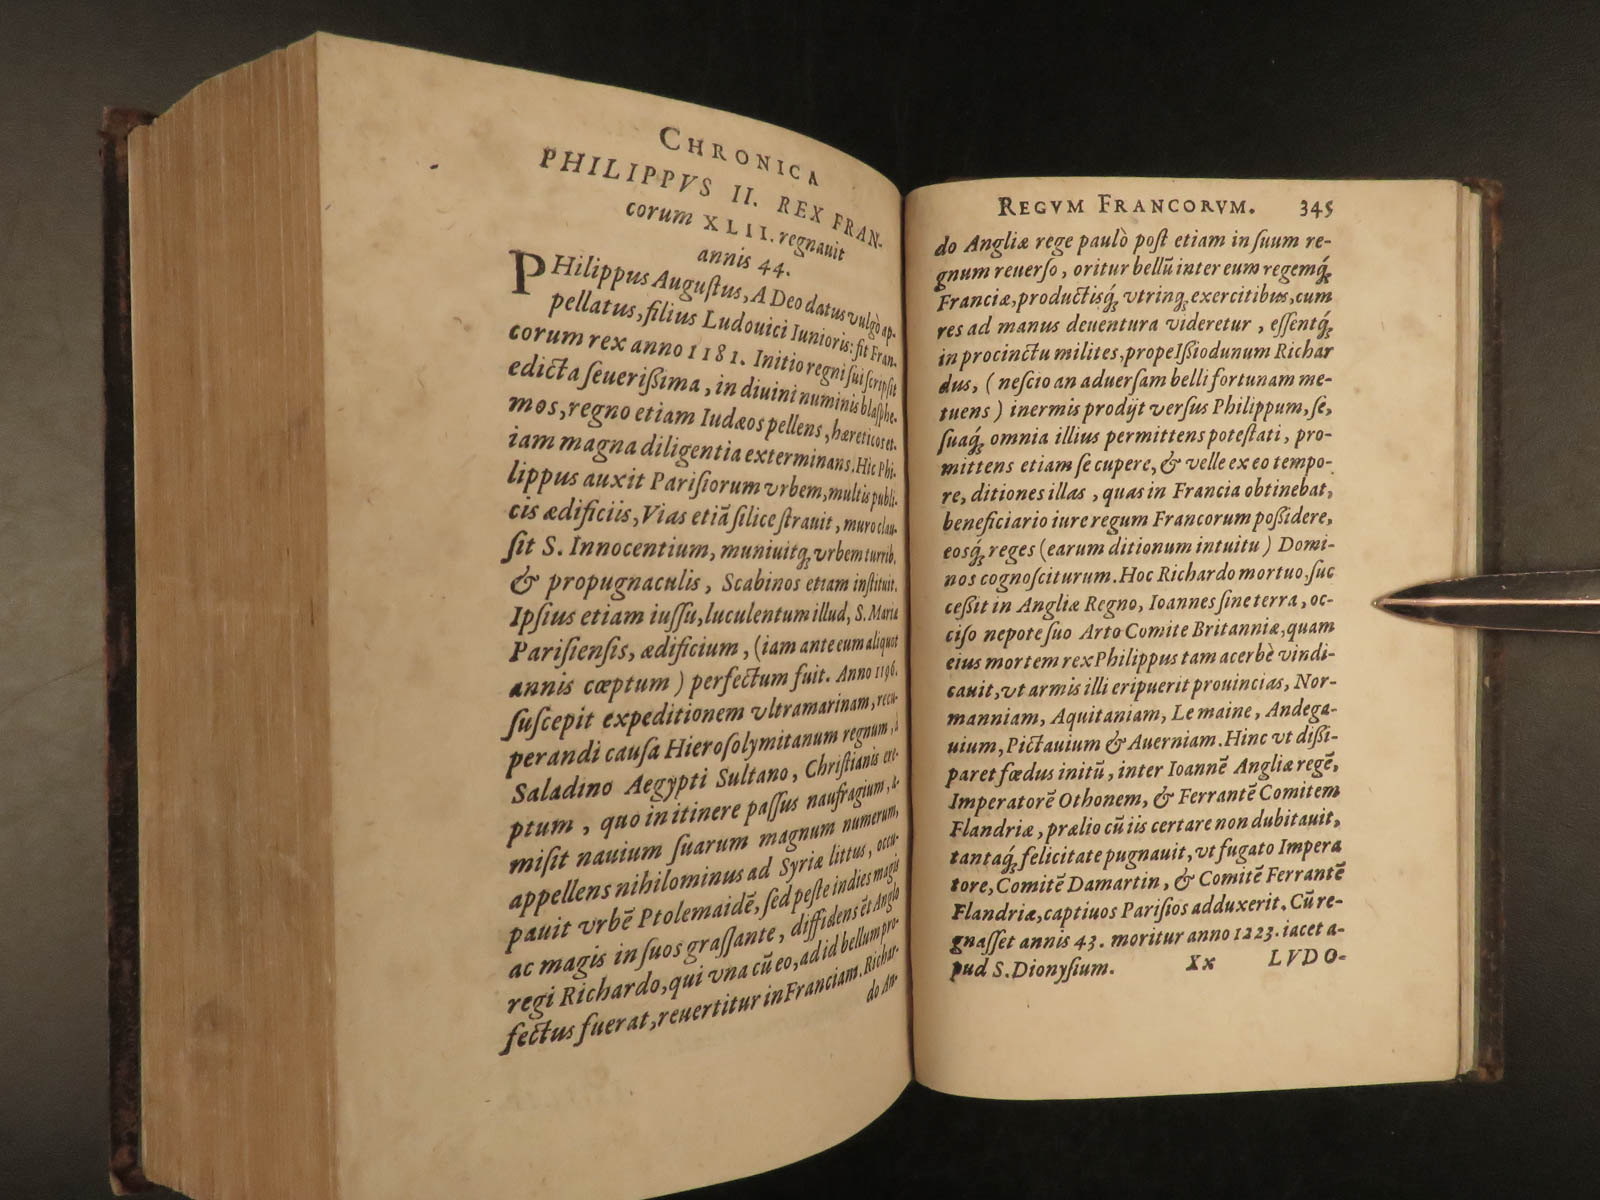 CHRONICA
PHILIPPVS II. REX FRAN-
corum XLII. regnauit
annis 44.
PHilippus Auguſtus, A Deo datus vulgò ap-
pellatus, filius Ludouici Iunioris: fit Fran-
corum rex anno 1181. Initio regni ſui ſcripſit
edicta ſeueriſsima, in diuini numinis blaſphe-
mos, regno etiam Iudæos pellens, hæreticos et-
iam magna diligentia exterminans. Hic Phi-
lippus auxit Pariſiorum vrbem, multis publi-
cis ædificiis, Vias etiã ſilice ſtrauit, muro clau-
ſit S. Innocentium, muniuitq́; vrbem turrib.
& propugnaculis, Scabinos etiam inſtituit.
Ipſius etiam iuſſu, luculentum illud, S. Mariæ
Pariſienſis, ædificium, (iam ante eum aliquot
annis cœptum) perfectum fuit. Anno 1196.
ſuſcepit expeditionem vltramarinam, recu-
perandi cauſa Hieroſolymitanum regnum, à
Saladino Aegypti Sultano, Chriſtianis ere-
ptum, quo in itinere paſſus naufragium, a-
miſit nauium ſuarum magnum numerum,
appellens nihilominus ad Syriæ littus, occu-
pauit vrbē Ptolemaidē, ſed peſte indies magis
ac magis in ſuos graſſante, diffidens ēt Anglo
regi Richardo, qui vna cū eo, ad id bellum pro-
fectus fuerat, reuertitur in Franciam. Richar-
do An-
REGVM FRANCORVM. 345
do Angliæ rege paulò poſt etiam in ſuum re-
gnum reuerſo, oritur bellū inter eum regemq́;
Franciæ, productisq́; vtrinq; exercitibus, cum
res ad manus deuentura videretur, eſſentq́;
in procinctu milites, prope Iſsiodunum Richar
dus, (neſcio an aduerſam belli fortunam me-
tuens) inermis prodijt verſus Philippum, ſe,
ſuaq́; omnia illius permittens poteſtati, pro-
mittens etiam ſe cupere, & velle ex eo tempo-
re, ditiones illas, quas in Francia obtinebat,
beneficiario iure regum Francorum poſsidere,
eosq́; reges (earum ditionum intuitu) Domi-
nos cognoſciturum. Hoc Richardo mortuo, ſuc
ceſsit in Angliæ Regno, Ioannes ſine terra, oc-
ciſo nepote ſuo Arto Comite Britanniæ, quam
eius mortem rex Philippus tam acerbè vindi-
cauit, vt armis illi eripuerit prouincias, Nor-
manniam, Aquitaniam, Le maine, Andega-
uium, Pictauium & Auerniam. Hinc vt diſsi-
paret fœdus initū, inter Ioannē Angliæ regē,
Imperatorē Othonem, & Ferrantē Comitem
Flandriæ, prælio cū iis certare non dubitauit,
tantaq́; felicitate pugnauit, vt fugato Impera
tore, Comitē Damartin, & Comitē Ferrantē
Flandriæ, captiuos Pariſios adduxerit. Cū re-
gnaſſet annis 43. moritur anno 1223. iacet a-
pud S. Dionyſium. Xx LVDO-